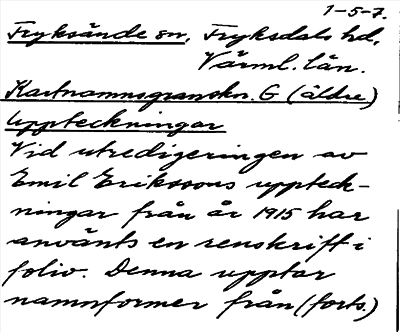 1-5-7.
Fryksände sn, Fryksdals hd,
Värml. län.
Kartnamnsgranskn. G (äldre)
uppteckningar
Vid utredigeringen av
Emil Erikssons uppteck-
ningar från år 1915 har
använts en renskrift i
folio. Denna upptar
namnformer från (forts.)